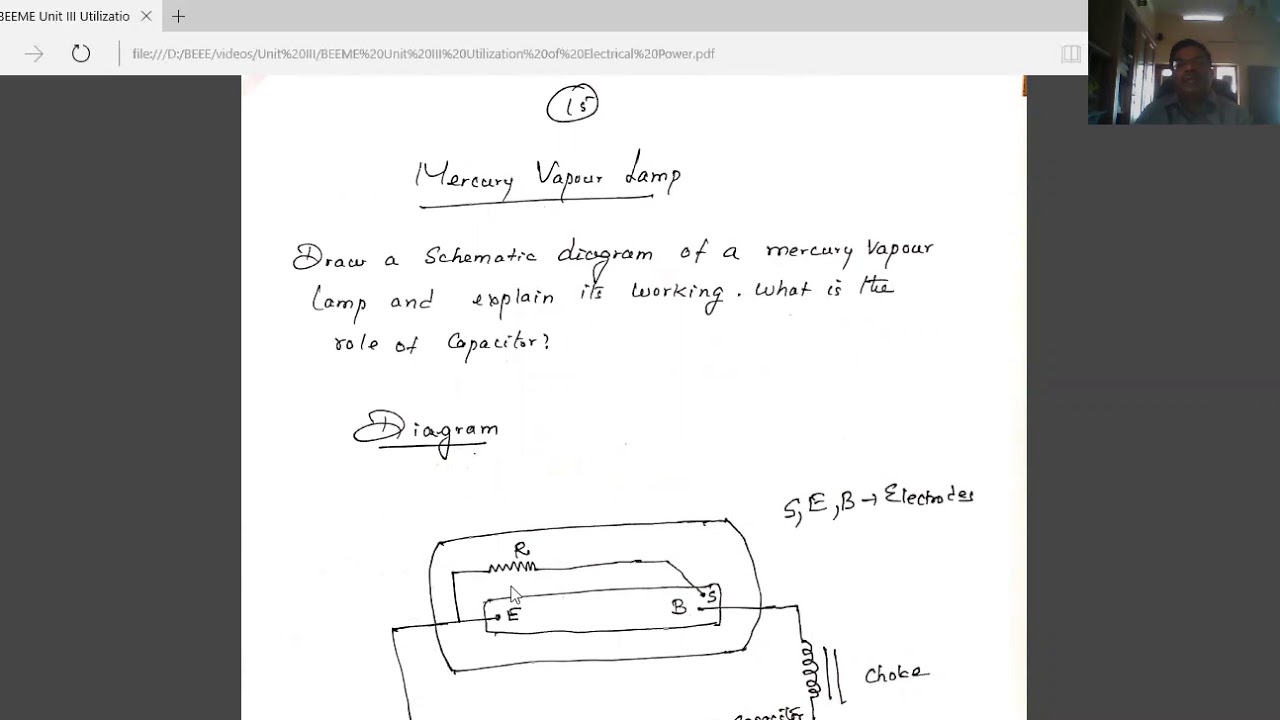 BEEME Unit III Utilizatio
file:///D:/BEEE/videos/Unit%20III/BEEME%20Unit%20III%20Utilization%20of%20Electrical%20Power.pdf
15
Mercury Vapour Lamp
Draw a Schematic diagram of a mercury Vapour
Lamp and explain its working. What is the
role of Capacitor?
Diagram
S, E, B → Electrodes
R
S
B
E
Choke
Capacitor